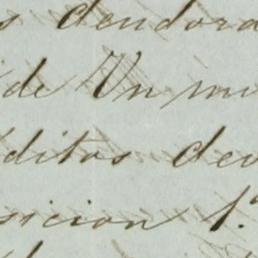 s deudora
de Un mi
ditos dev
sicion 1.ª